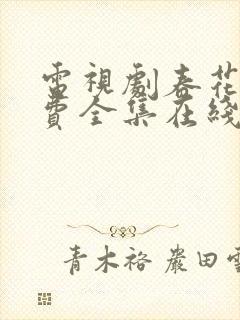 電視劇春花
費全集在綫
青木裕 嚴田雪